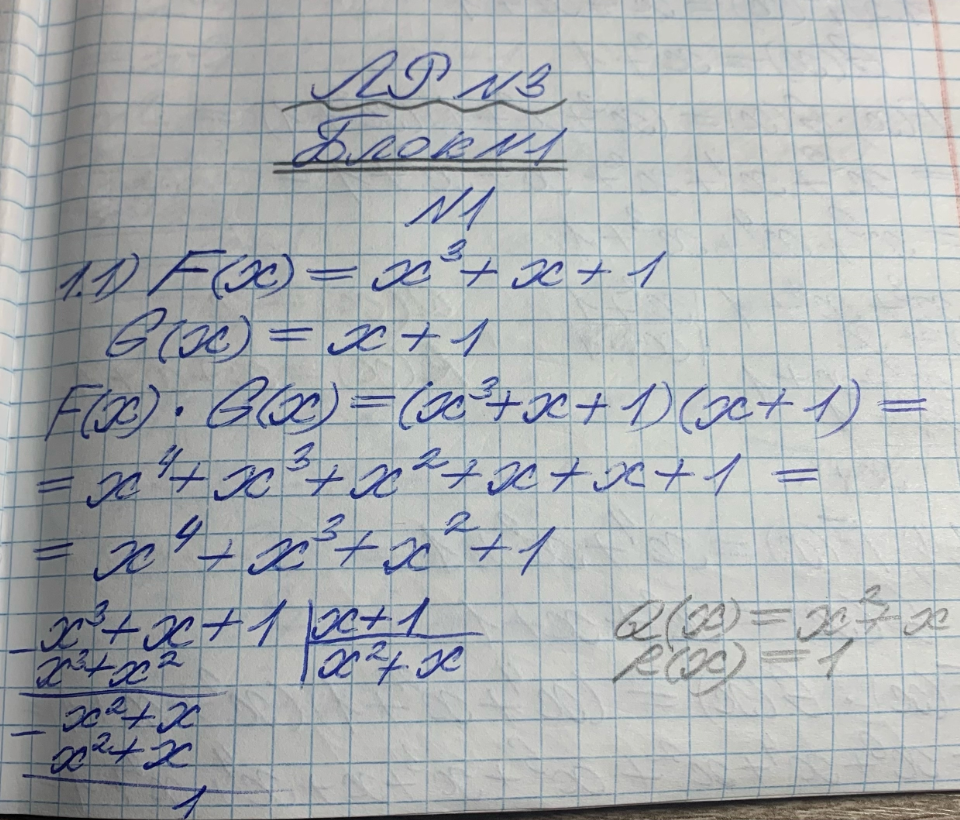 ЛР №3
Блок №1
№1
1.1) F(x) = x³ + x + 1
G(x) = x + 1
F(x) · G(x) = (x³ + x + 1)(x + 1) =
= x⁴ + x³ + x² + x + x + 1 =
= x⁴ + x³ + x² + 1
x³ + x + 1 | x + 1
- x³ + x² | x² + x
x² + x
- x² + x
1
Q(x) = x³ + x
R(x) = 1